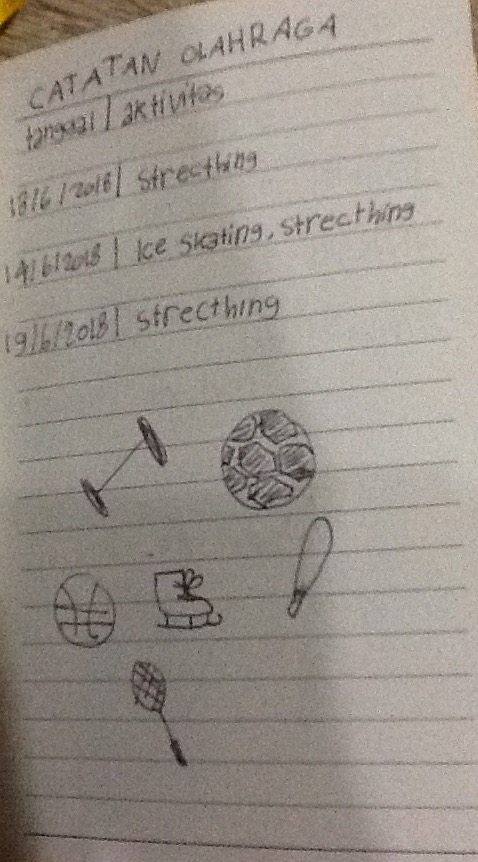 CATATAN OLAHRAGA
tanggal | aktivitas
18/6/2018 | strecthing
14/6/2018 | Ice skating, strecthing
19/6/2018 | strecthing